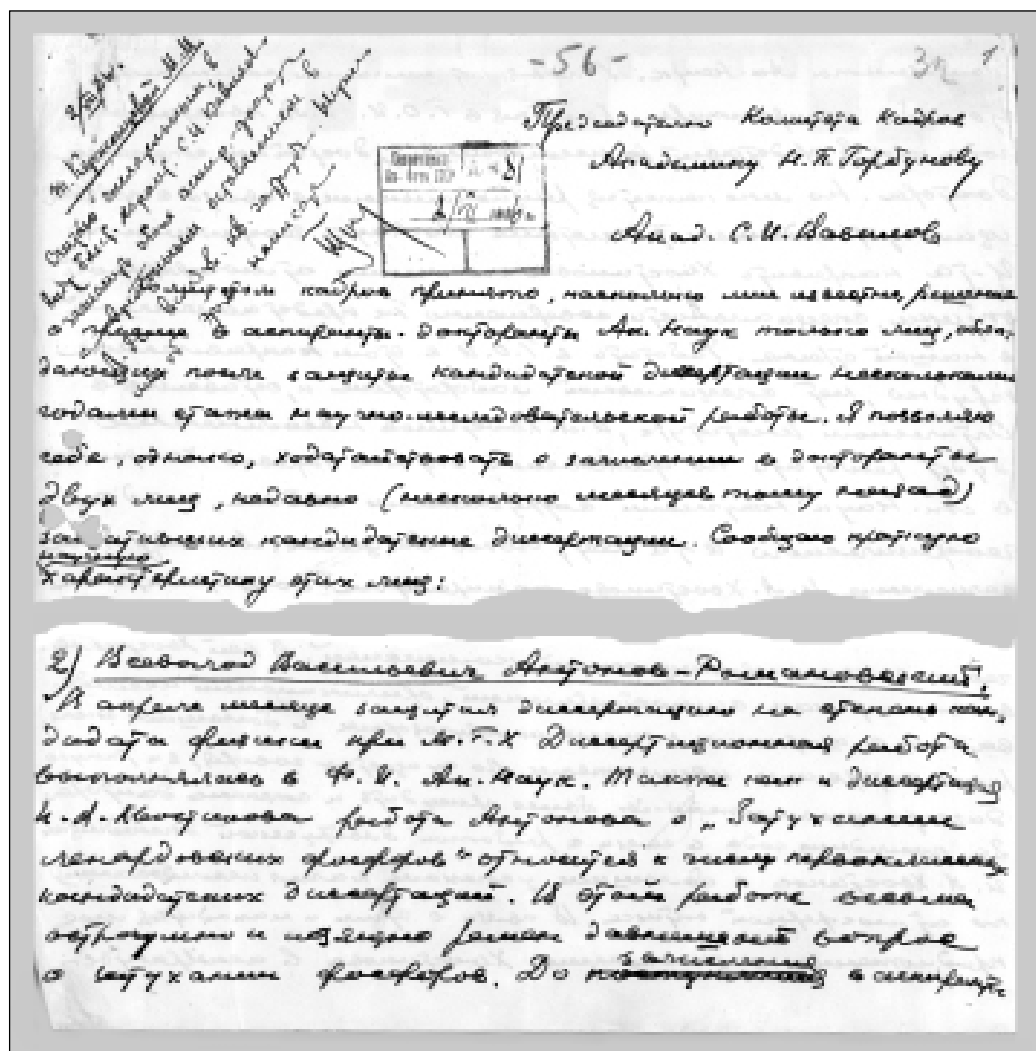 -56-
1
Председателю Комитета кадров
Академику Н.П. Горбунову
Акад. С.И. Вавилов
Комитетом кадров принято, насколько мне известно, решение
о приеме в аспиранты-докторанты Ак. Наук только лиц, обла-
дающих после защиты кандидатской диссертации несколькими
годами стажа научно-исследовательской работы. Я позволяю
себе, однако, ходатайствовать о зачислении в докторанты
двух лиц, недавно (несколько месяцев тому назад)
защитивших кандидатские диссертации. Сообщаю краткую
научную
характеристику этих лиц:
2) Всеволод Васильевич Антонов-Романовский.
В апреле месяце защитил диссертацию на степень кан-
дидата физики при М.Г.У. Диссертационная работа
выполнялась в Ф.И. Ак. Наук. Также как и диссертация
И.А. Хвостикова работа Антонова о „Затухании
ленардовских фосфоров" относится к числу первоклассных
кандидатских диссертаций. В этой работе весьма
остроумно и изящно решен давнишний вопрос
о затухании фосфоров. До зачисления в аспиранты